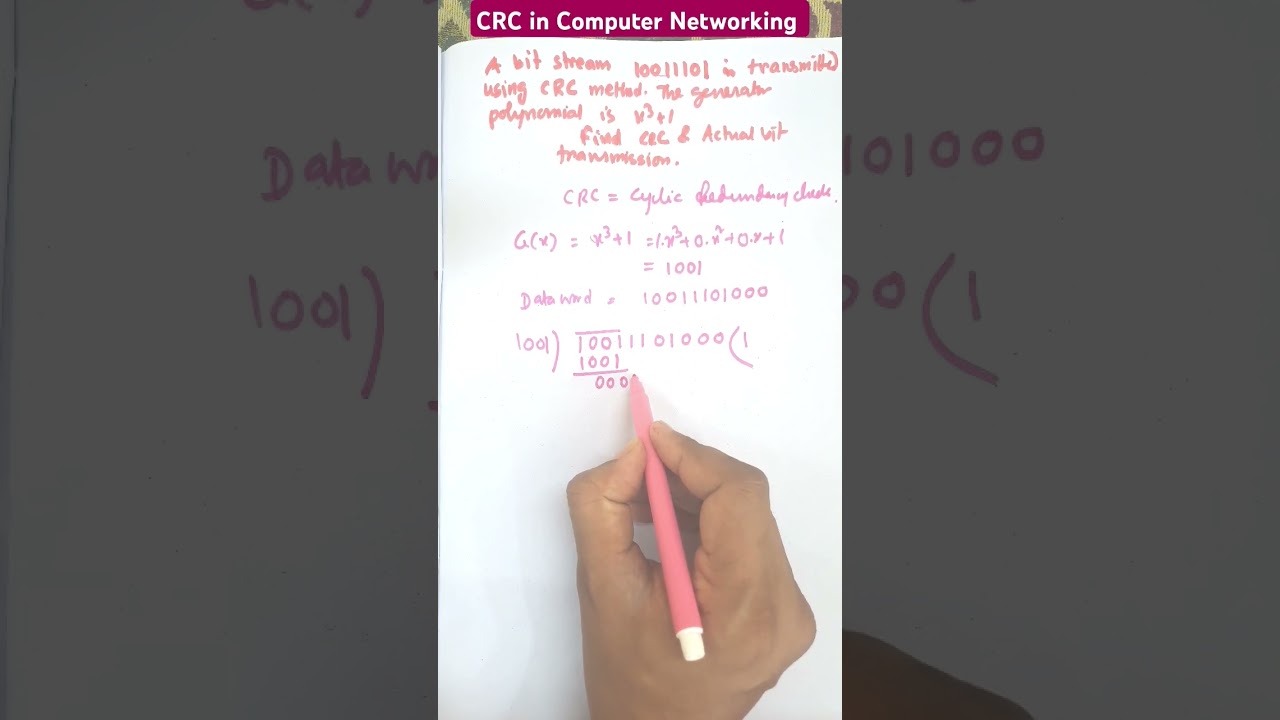 CRC in Computer Networking
A bit stream 10011101 is transmitted
using CRC method. The generator
polynomial is x³+1
Find CRC & Actual bit
transmission.
CRC = Cyclic Redundancy check.
G(x) = x³+1 = 1.x³+0.x²+0.x+1
= 1001
Data word = 10011101000
1001) 10011101000 (1
1001
000